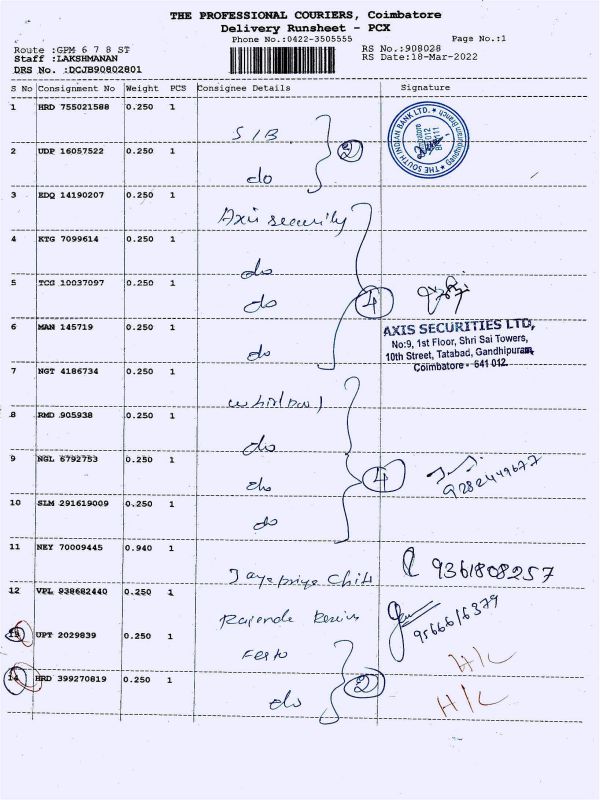 THE PROFESSIONAL COURIERS, Coimbatore
Delivery Runsheet - PCX
Phone No.:0422-3505555
Page No.:1
Route :GPM 6 7 8 ST
RS No.:908028
Staff :LAKSHMANAN
RS Date:18-Mar-2022
DRS No. :DCJB90802801
S No Consignment No Weight PCS Consignee Details Signature
1 HRD 755021588 0.250 1
SIB
2
THE SOUTH INDIAN BANK LTD.
2 UDP 16057522 0.250 1
do
3 EDQ 14190207 0.250 1
Axis security
4 KTG 7099614 0.250 1
do
5 TCG 10037097 0.250 1
do
4
6 MAN 145719 0.250 1
do
AXIS SECURITIES LTD,
No:9, 1st Floor, Shri Sai Towers,
10th Street, Tatabad, Gandhipuram,
Coimbatore - 641 012.
7 NGT 4186734 0.250 1
whirlpool
8 RMD 905938 0.250 1
do
9 NGL 6792753 0.250 1
do
4
9282449677
10 SLM 291619009 0.250 1
do
11 NEY 70009445 0.940 1
Jayapriya Chits
9361808257
12 VPL 938682440 0.250 1
9566616379
13 UPT 2029839 0.250 1
Festo
H/L
14 HRD 399270819 0.250 1
do
2
H/L